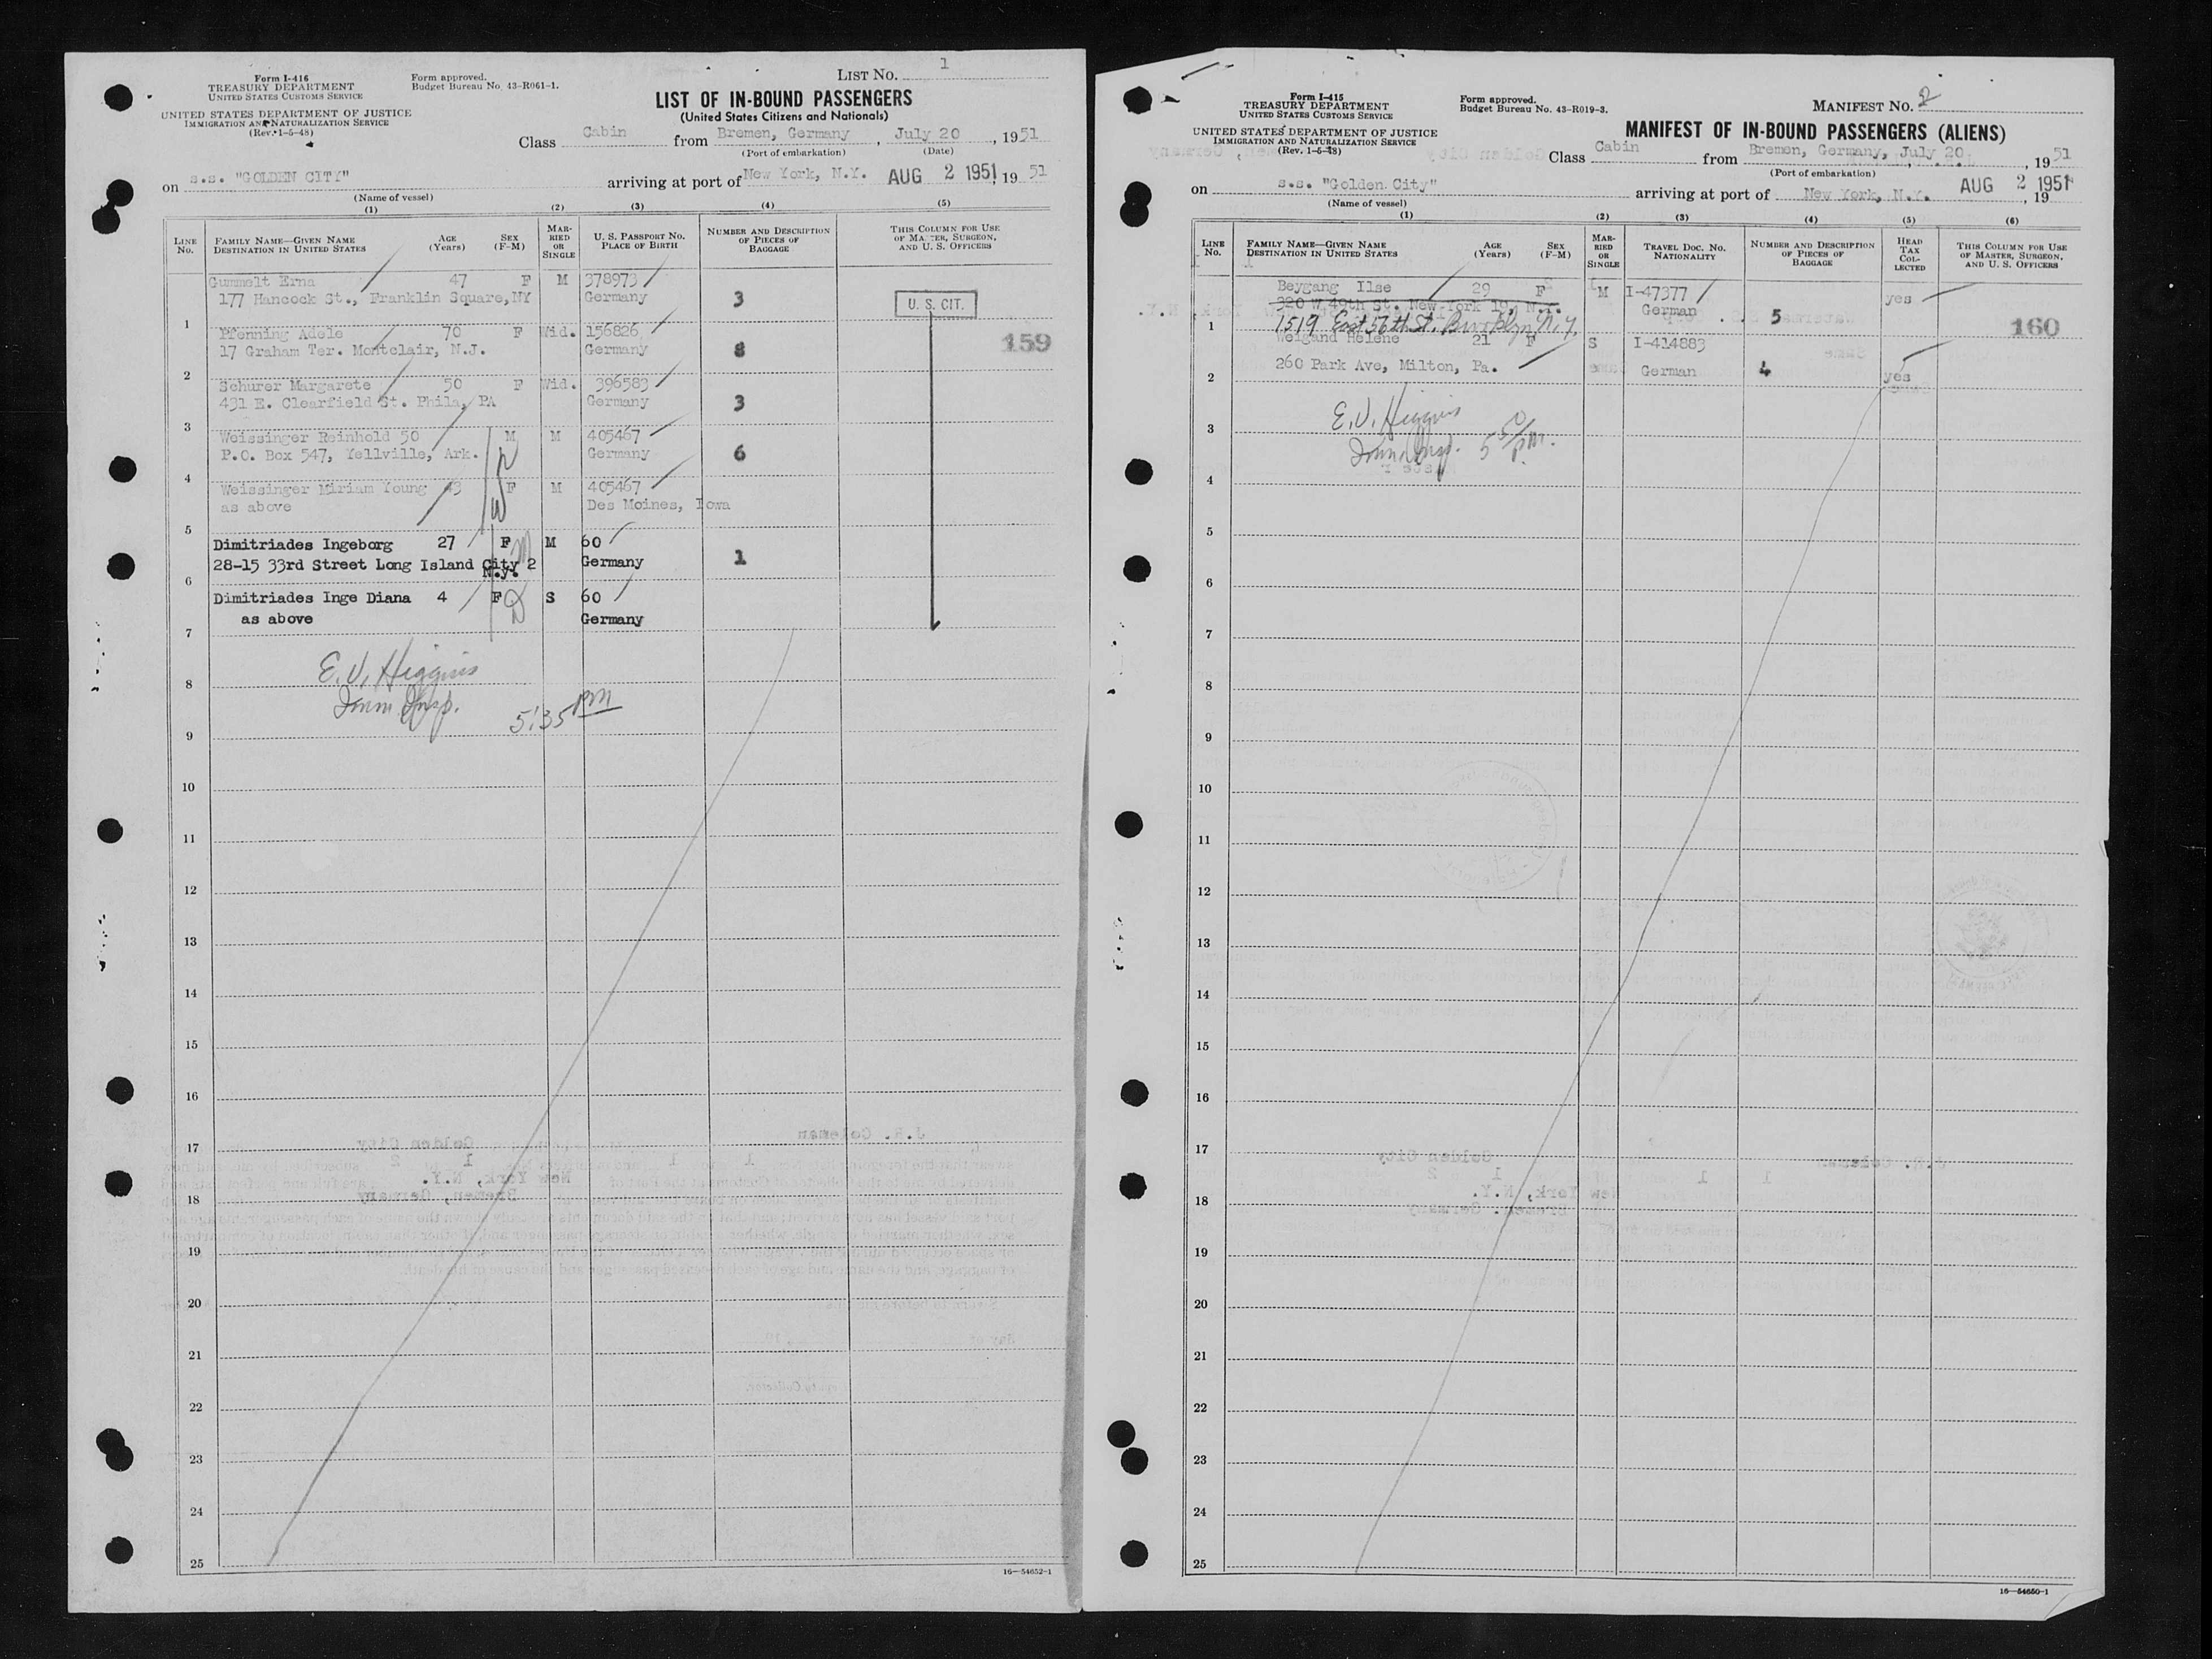 Form I-416
TREASURY DEPARTMENT
UNITED STATES CUSTOMS SERVICE
UNITED STATES DEPARTMENT OF JUSTICE
IMMIGRATION AND NATURALIZATION SERVICE
(Rev. 1-5-48)
Form approved.
Budget Bureau No. 43-R061-1.
LIST NO. 1
LIST OF IN-BOUND PASSENGERS
(United States Citizens and Nationals)
Class Cabin from Bremen, Germany, July 20, 1951
(Port of embarkation) (Date)
on s.s. "GOLDEN CITY" arriving at port of New York, N.Y. AUG 2 1951, 19 51
(Name of vessel)
(1) (2) (3) (4) (5)
LINE NO. FAMILY NAME—GIVEN NAME DESTINATION IN UNITED STATES AGE (Years) SEX (F-M) MARRIED OR SINGLE U. S. PASSPORT NO. PLACE OF BIRTH NUMBER AND DESCRIPTION OF PIECES OF BAGGAGE THIS COLUMN FOR USE OF MASTER, SURGEON, AND U. S. OFFICERS
Gummelt Erna 47 F M 378973
177 Hancock St., Franklin Square, NY Germany 3 U. S. CIT.
1
Pfenning Adele 70 F Wid. 156826
17 Graham Ter. Montclair, N.J. Germany 8 159
2
Schurer Margarete 50 F Wid. 396583
431 E. Clearfield St. Phila, PA Germany 3
3
Weissinger Reinhold 50 M M 405467
P.O. Box 547, Yellville, Ark. Germany 6
4
Weissinger Miriam Young 43 F M 405467
as above Des Moines, Iowa
5
Dimitriades Ingeborg 27 F M 60
28-15 33rd Street Long Island City 2 Germany 1
N.Y.
6
Dimitriades Inge Diana 4 F S 60
as above Germany
7
E.V. Higgins
8
Imm Insp. 5:35 PM
9
10
11
12
13
14
15
16
17
18
19
20
21
22
23
24
25
16—54652-1
Form I-415
TREASURY DEPARTMENT
UNITED STATES CUSTOMS SERVICE
UNITED STATES DEPARTMENT OF JUSTICE
IMMIGRATION AND NATURALIZATION SERVICE
(Rev. 1-5-48)
Form approved.
Budget Bureau No. 43-R019-3.
MANIFEST NO. 2
MANIFEST OF IN-BOUND PASSENGERS (ALIENS)
Class Cabin from Bremen, Germany, July 20, 1951
(Port of embarkation)
on s.s. "Golden City" arriving at port of New York, N.Y. AUG 2 1951, 19
(Name of vessel)
(1) (2) (3) (4) (5) (6)
LINE NO. FAMILY NAME—GIVEN NAME DESTINATION IN UNITED STATES AGE (Years) SEX (F-M) MARRIED OR SINGLE TRAVEL DOC. NO. NATIONALITY NUMBER AND DESCRIPTION OF PIECES OF BAGGAGE HEAD TAX COLLECTED THIS COLUMN FOR USE OF MASTER, SURGEON, AND U. S. OFFICERS
Beygang Ilse 29 F M I-47377 yes
320 W 49th St. New York 19, N.Y. German 5
1 1519 East 56th St. Brooklyn N.Y. 160
Weigand Helene 21 F S I-414883
260 Park Ave, Milton, Pa. German 4 yes
2
E.V. Higgins
3
Imm Insp. 5 50/P.M.
4
5
6
7
8
9
10
11
12
13
14
15
16
17
18
19
20
21
22
23
24
25
16—54650-1